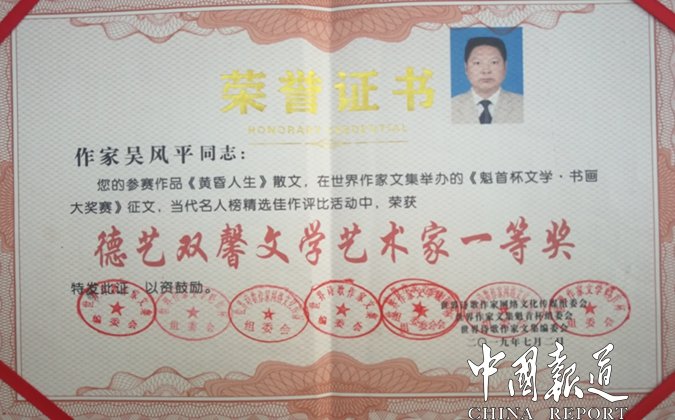 荣誉证书
HONORARY CREDENTIAL
作家吴风平同志：
您的参赛作品《黄昏人生》散文，在世界作家文集举办的《魁首杯文学·书画
大奖赛》征文，当代名人榜精选佳作评比活动中，荣获
德艺双馨文学艺术家一等奖
特发此证，以资鼓励。
组委会
组委会
组委会
组委会
组委会
世界诗歌作家网络文化传媒组委会
世界作家文集魁首杯组委会
世界诗歌作家文集编委会
二〇一九年七月二日
中国报道
CHINA REPORT